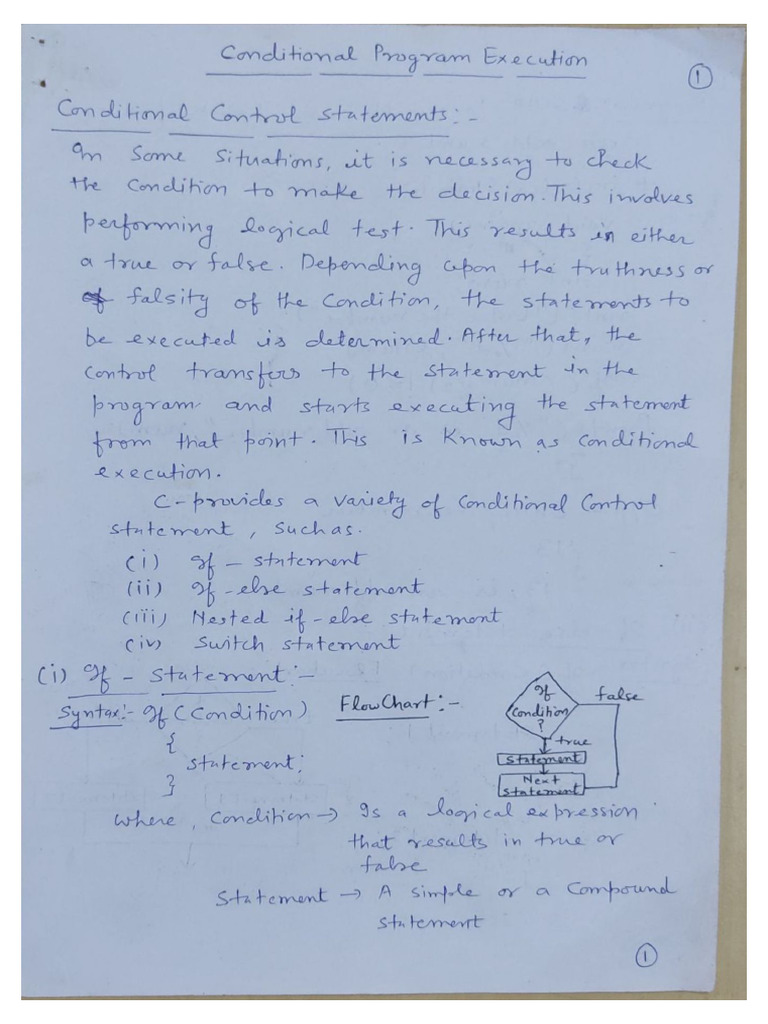 Conditional Program Execution
1
Conditional Control Statements:-
In Some Situations, it is necessary to check
the condition to make the decision. This involves
performing logical test. This results in either
a true or false. Depending upon the truthness or
falsity of the Condition, the statements to
be executed is determined. After that, the
control transfers to the statement in the
program and starts executing the statement
from that point. This is Known as conditional
execution.
C-provides a variety of Conditional Control
statement, such as.
(i) If - statement
(ii) If -else statement
(iii) Nested if-else statement
(iv) Switch statement
(i) If - Statement:-
Syntax:- If (Condition)
{
statement;
}
FlowChart:-
If
Condition
?
false
true
Statement
Next
Statement
where, Condition → Is a logical expression
that results in true or
false
Statement → A simple or a Compound
statement
1